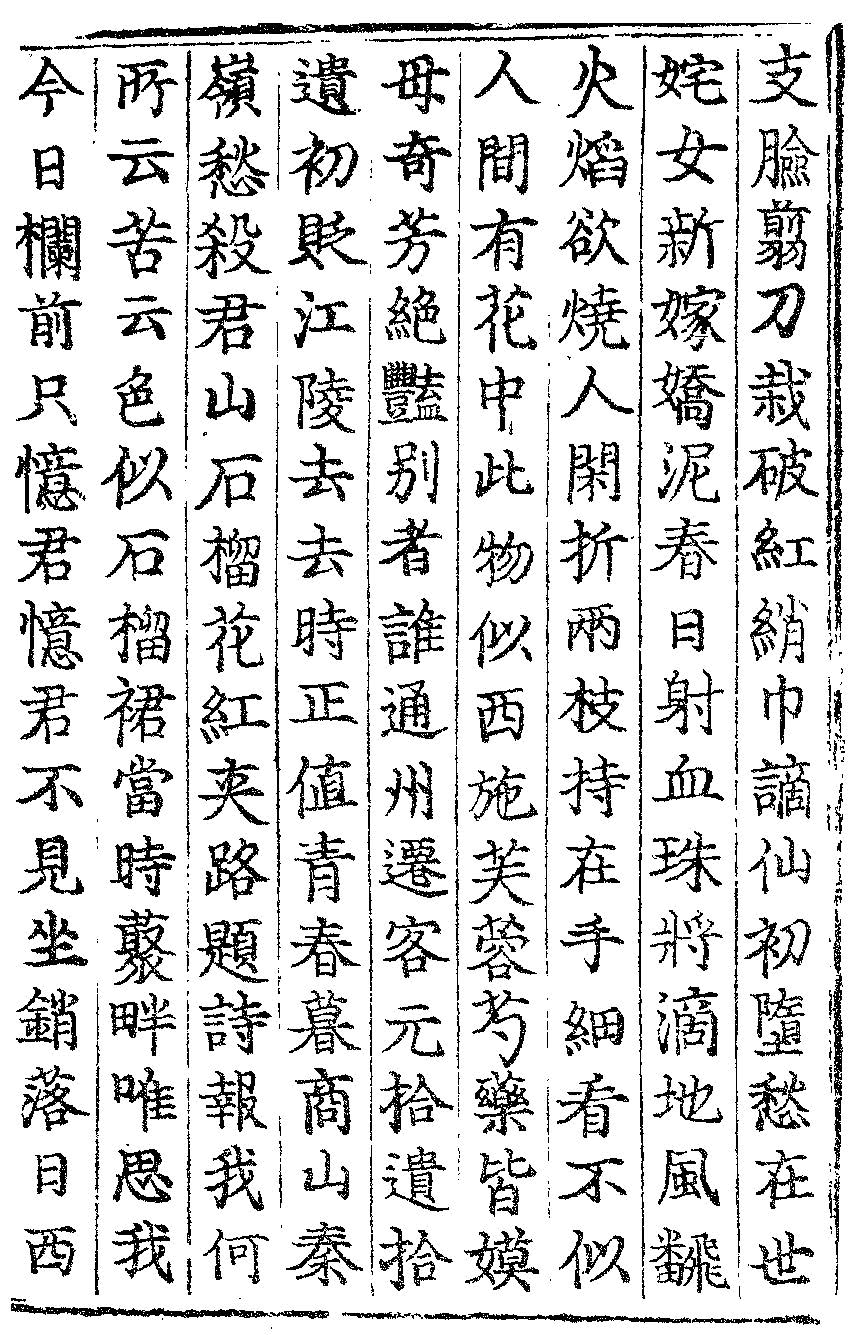 支臉翦刀栽破紅綃巾謫仙初墮愁在世
姹女新嫁嬌泥春日射血珠將滴地風飜
火熖欲燒人閑折兩枝持在手細看不似
人間有花中此物似西施芙蓉芍藥皆嫫
母奇芳絕豔别者誰通州遷客元拾遺拾
遺初貶江陵去去時正值青春暮商山秦
嶺愁殺君山石榴花紅夾路題詩報我何
所云苦云色似石榴裙當時藂畔唯思我
今日欄前只憶君憶君不見坐銷落日西